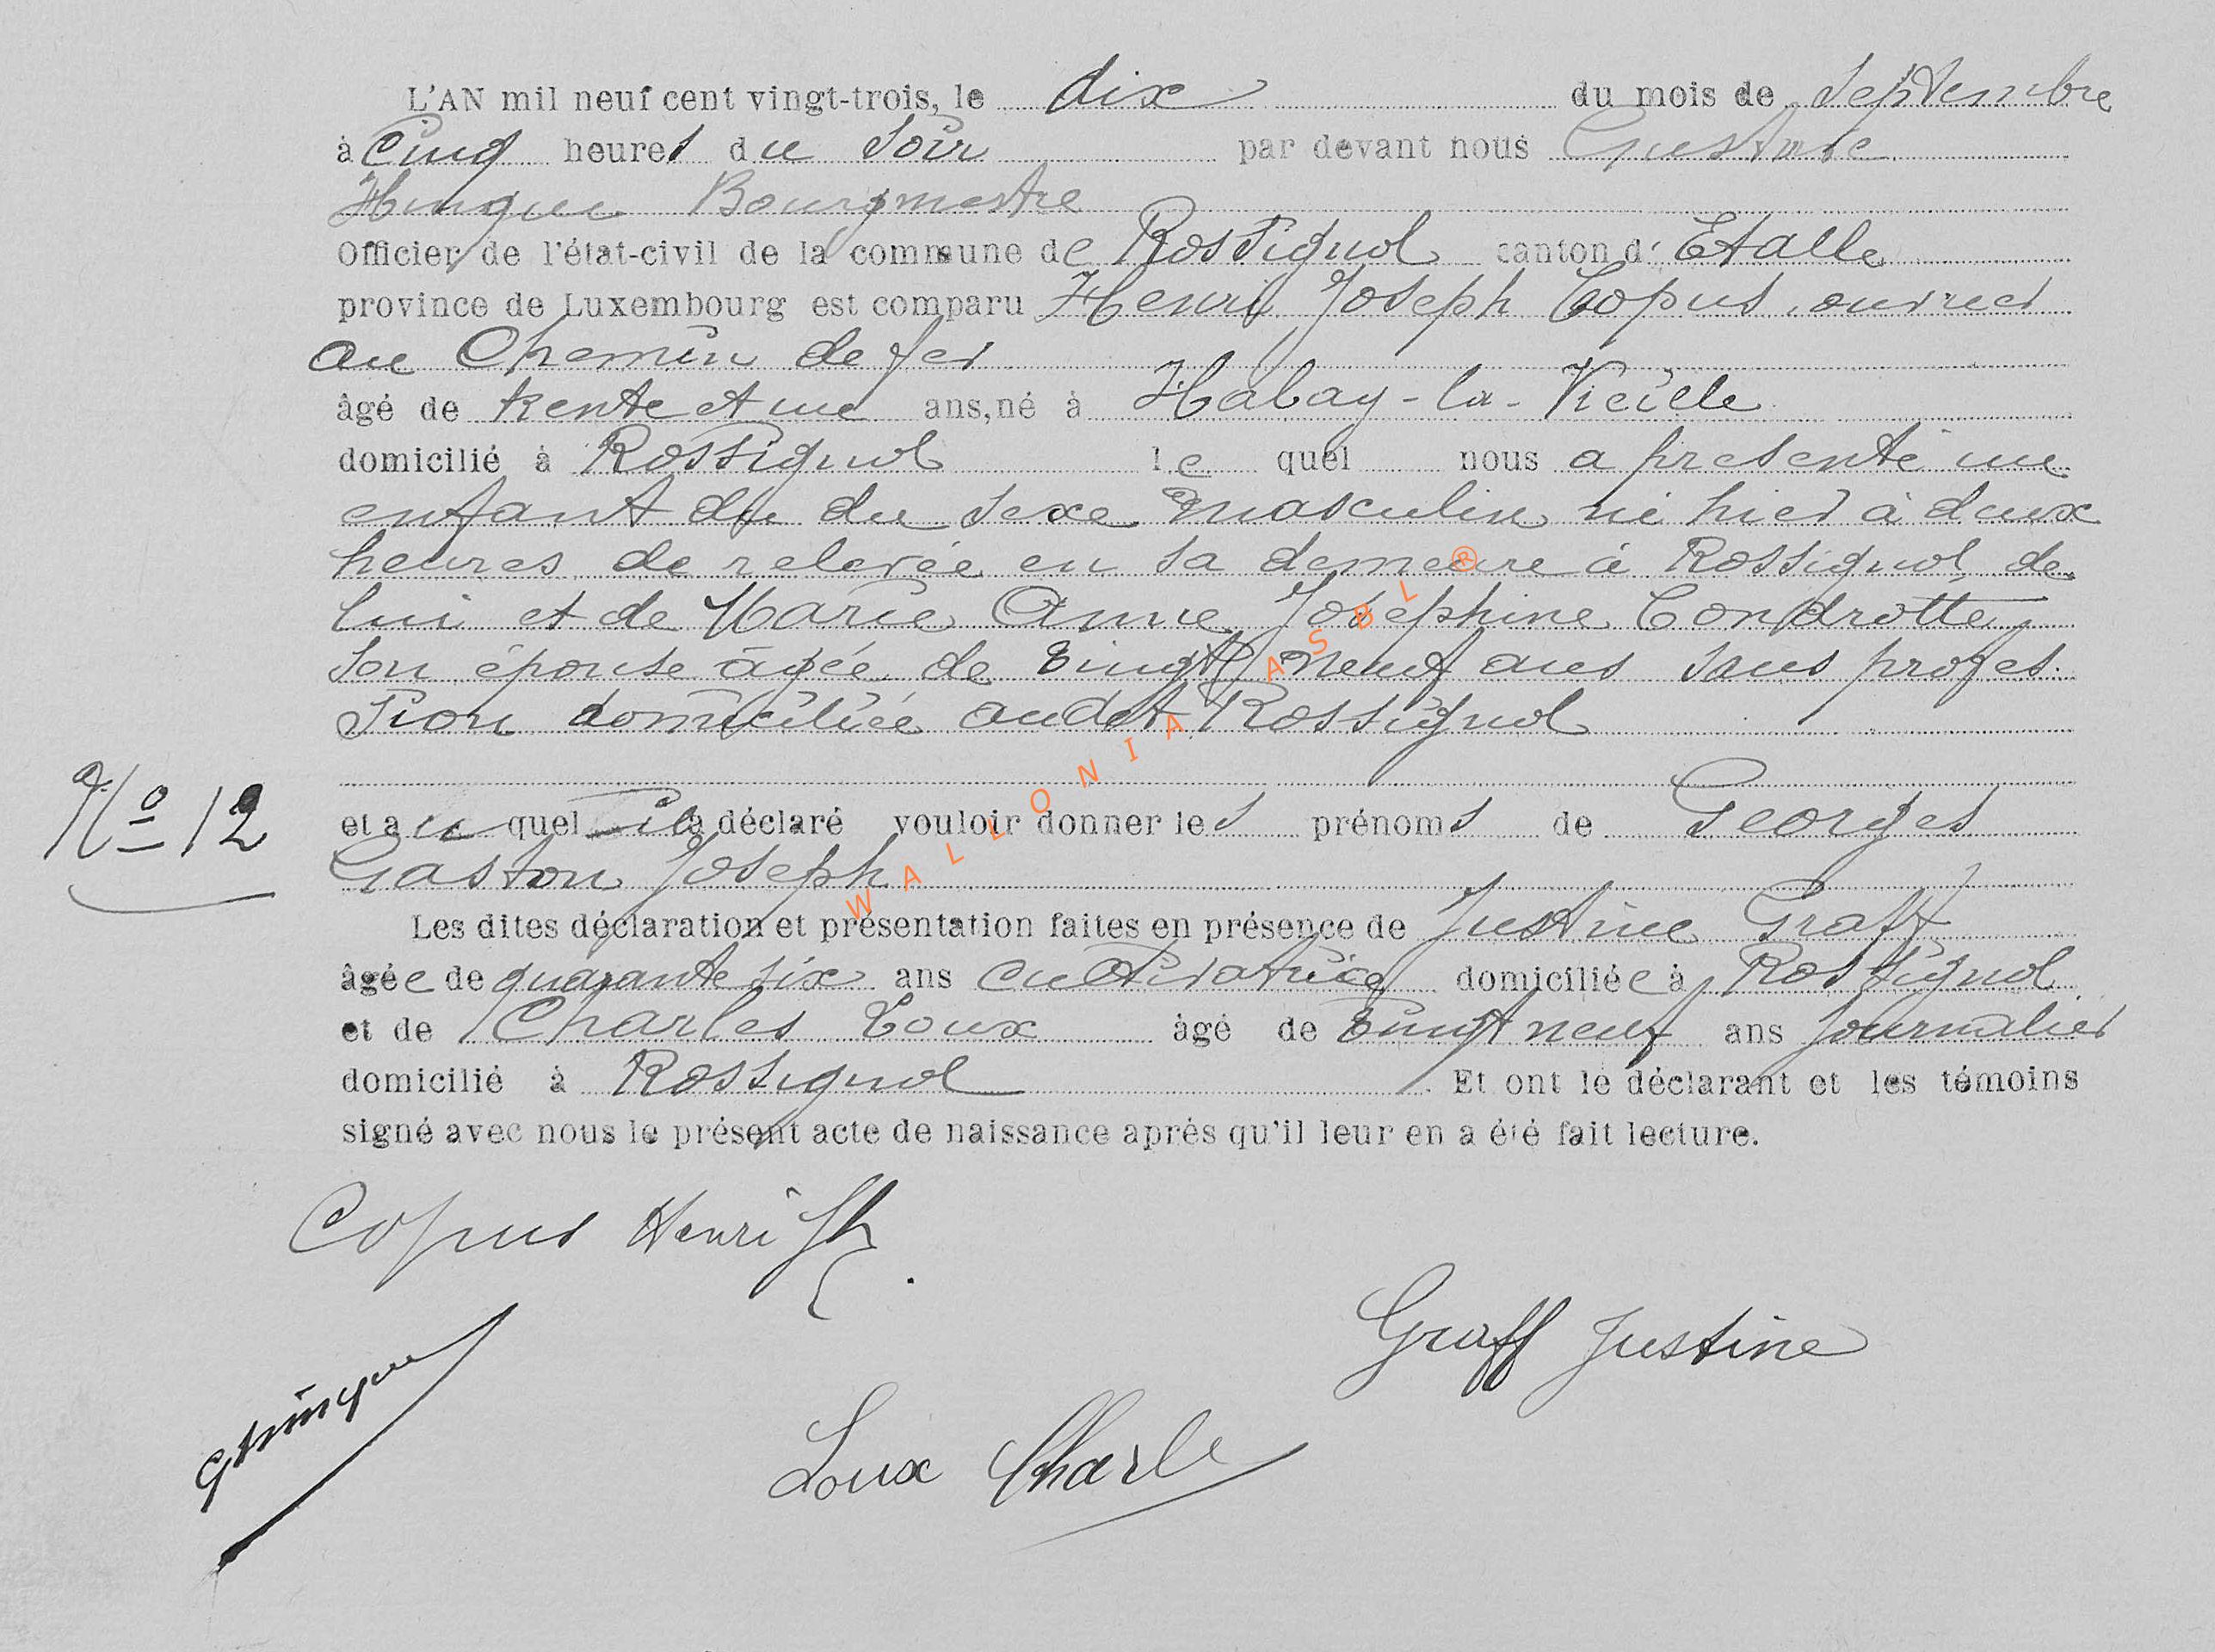 L'AN mil neuf cent vingt-trois, le dix du mois de Septembre
à Cinq heures du Soir par devant nous Gustave
Hinque Bourgmestre
Officier de l'état-civil de la commune de Rossignol canton d' Etalle
province de Luxembourg est comparu Henri Joseph Copus, ouvrier
au Chemin de fer
âgé de trente et un ans, né à Habay-la-Vieille
domicilié à Rossignol le quel nous a presenté un
enfant du du sexe masculin né hier à deux
heures de relevée en sa demeure à Rossignol de
lui et de Marie Anne Joséphine Condrotte
son épouse âgée de vingt neuf ans sans profes
sion domiciliée audit Rossignol
No 12
et au quel il a déclaré vouloir donner les prénoms de Georges
Gaston Joseph
Les dites déclaration et présentation faites en présence de Justine Graff
âgée de quarante six ans cultivatrice domiciliée à Rossignol
et de Charles Loux âgé de vingt neuf ans journalier
domicilié à Rossignol . Et ont le déclarant et les témoins
signé avec nous le présent acte de naissance après qu'il leur en a été fait lecture.
Copus Henri Jh
Graff Justine
GHinque
Loux Charle
WALLONIA ASBL ®